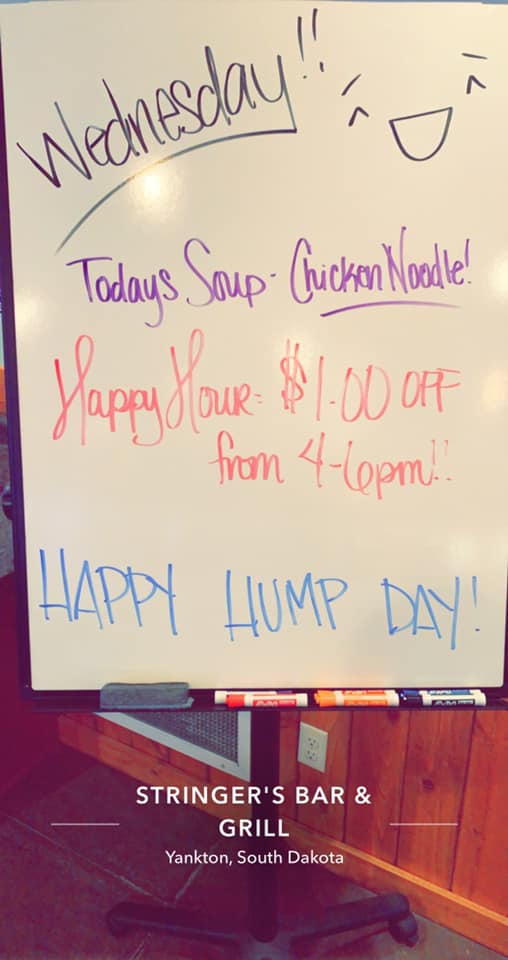 Wednesday!!
Todays Soup- Chicken Noodle!
Happy Hour= $1.00 OFF
from 4-6pm!!
HAPPY HUMP DAY!
STRINGER'S BAR &
GRILL
Yankton, South Dakota